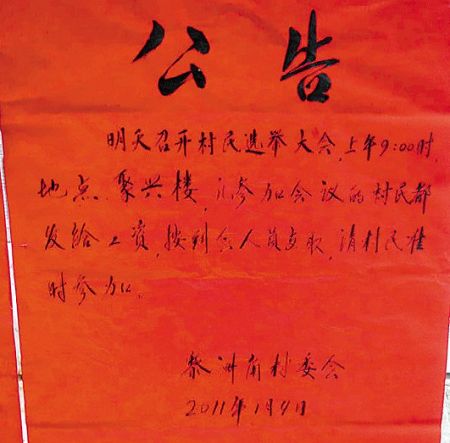 公告
明天召开村民选举大会,上午9:00时,
地点:聚兴楼,凡参加会议的村民都
发给工资,按到会人员点取,请村民准
时参加。
黎洲角村委会
2011年1月4日